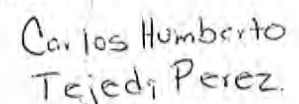 Carlos Humberto
Tejeda Perez.